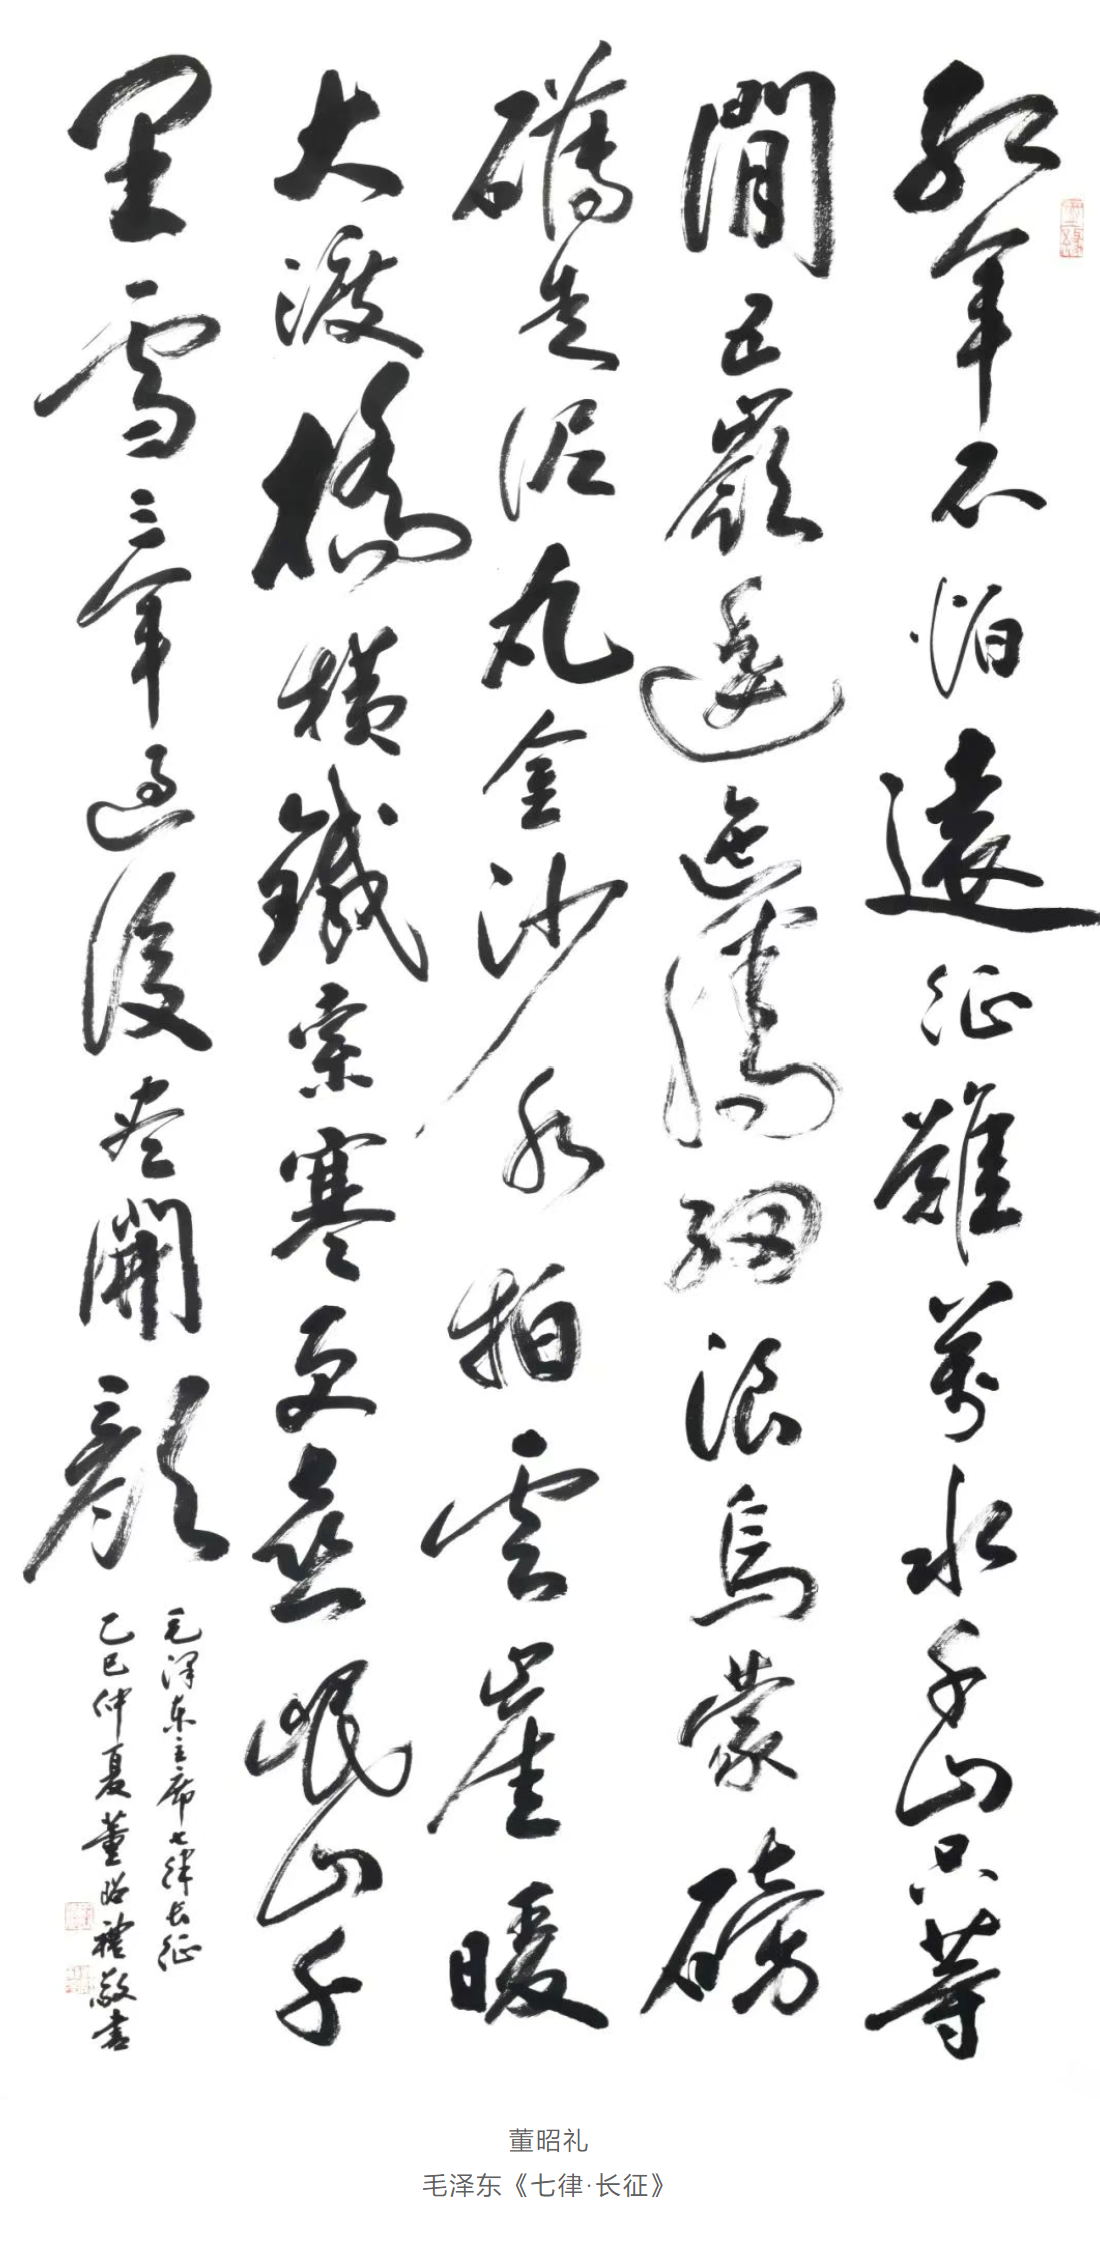 紅軍不怕遠征難萬水千山只等
閒五嶺逶迤騰細浪烏蒙磅
礴走泥丸金沙水拍雲崖暖
大渡橋橫鐵索寒更喜岷山千
里雪三軍過後盡開顏
毛澤东主席七律长征
乙巳仲夏董昭禮敬書
董昭礼
毛泽东《七律·长征》